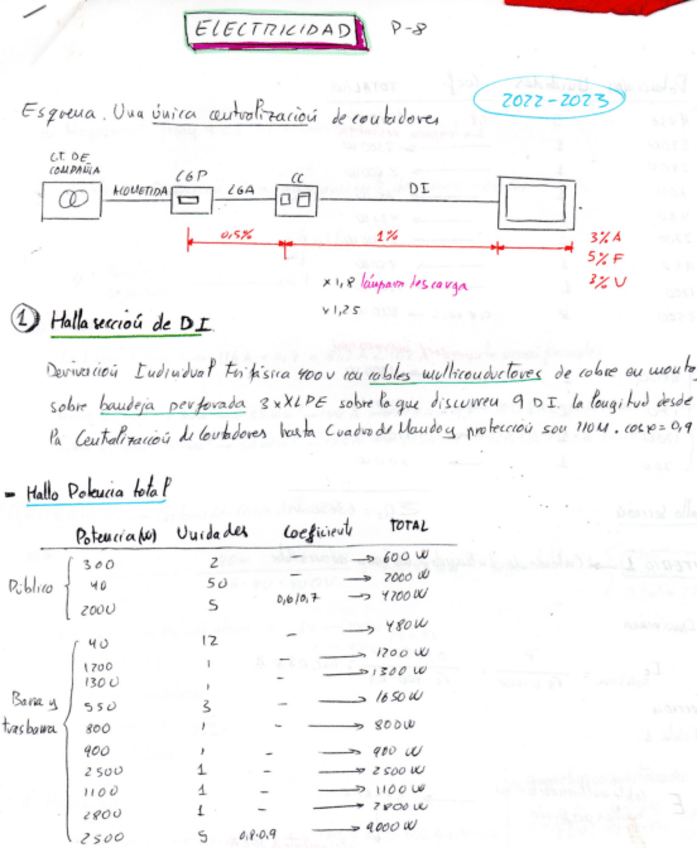 ELECTRICIDAD P-8
2022-2023
Esquema. Una única centralización de contadores
C.T. DE COMPAÑIA
ACOMETIDA
CGP
LGA
CC
DI
0,5% 1% 3% A
5% F
3% U
x1,8 lámpara descarga
x1,25
① Halla sección de D.I.
Derivación Individual trifásica 400v con cables multiconductores de cobre en
sobre bandeja perforada 3xXLPE sobre la que discurren 9 DI. la longitud desde
la Centralización de Contadores hasta Cuadro de Mando y protección son 110M. cosφ=0,9
- Hallo Potencia total
Potencia(W) Unidades Coeficiente TOTAL
Público
300 2 → 600 W
40 50 - → 2000 W
2000 5 0,6/0,7 → 4200 W
Barra y trasbarra
40 12 - → 480 W
1200 1 - → 1200 W
1300 1 - → 1300 W
550 3 - → 1650 W
800 1 - → 800 W
900 1 - → 900 W
2500 1 - → 2500 W
1100 1 - → 1100 W
2800 1 - → 2800 W
2500 5 0,8-0,9 → 9000 W